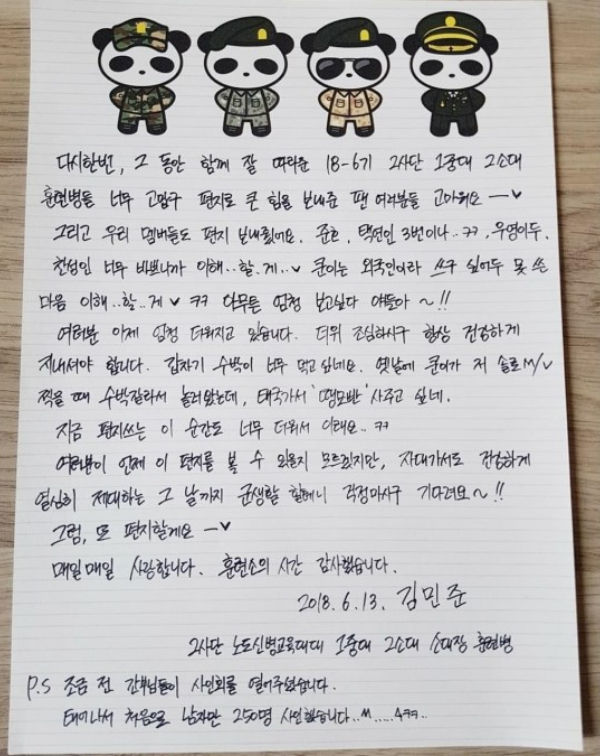 다시한번, 그 동안 함께 잘 따라준 18-6기 2사단 1중대 2소대
훈련병들 너무 고맙구 편지로 큰 힘을 보내준 팬 여러분들 고마워요 ―♥
그리고 우리 멤버들도 편지 보내줬어요. 준호, 택연인 3번이나..ㅋㅋ, 우영이두.
찬성인 너무 바쁘니까 이해..할.게..♥ 쿤이는 외국인이라 쓰구 싶어두 못 쓴
마음 이해..할..게 ♥ ㅋㅋ 아무튼 엄청 보고싶다 야들아 ~!!
여러분 이제 엄청 더워지고 있습니다. 더위 조심하시구 항상 건강하게
지내셔야 합니다. 갑자기 수박이 너무 먹고 싶네요. 옛날에 쿤이가 저 솔로 M/V
찍을 때 수박잘라서 놀러왔는데, 태국가서 '땡모반' 사주고 싶네.
지금 편지쓰는 이 순간도 너무 더워서 이래요..ㅋㅋ
여러분이 언제 이 편지를 볼 수 있을지 모르겠지만, 자대가서도 건강하게
열심히 제대하는 그 날까지 군생활 할테니 걱정마시구 기다려요~!!
그럼, 또 편지할게요 ―♥
매일매일 사랑합니다. 훈련소의 시간 감사했습니다.
2018.6.13. 김민준
2사단 노도신병교육대대 1중대 2소대 소대장 훈련병
P.S 조금 전 간부님들이 사인회를 열어주셨습니다.
태어나서 처음으로 남자만 250명 사인했습니다..